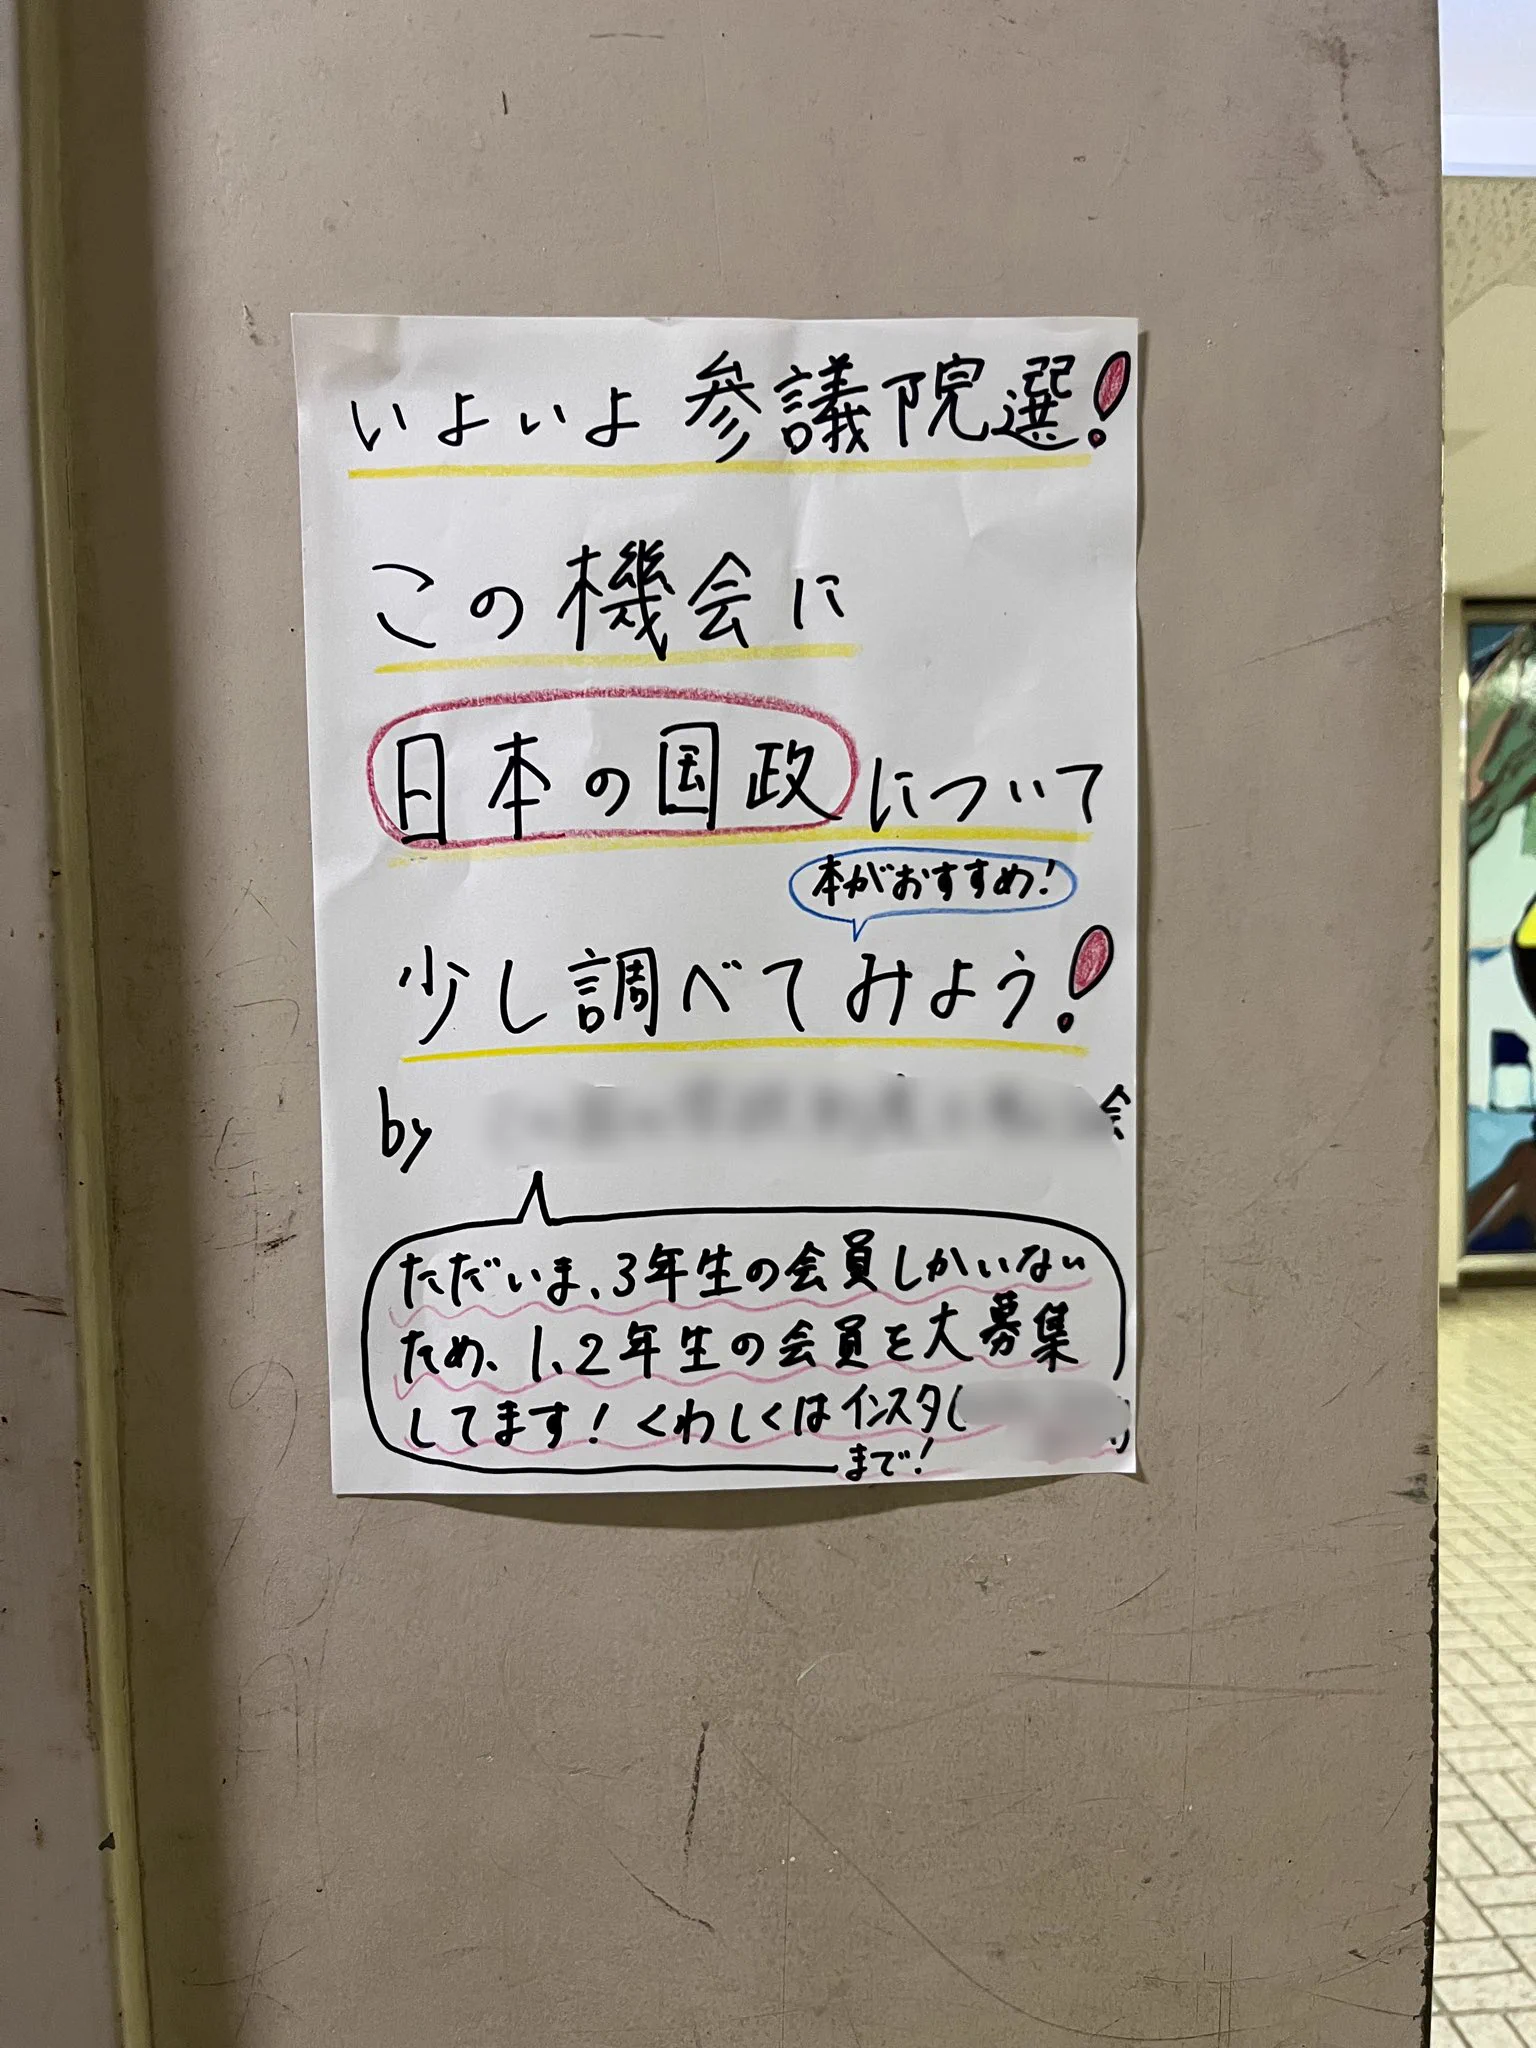 いよいよ参議院選!
この機会に
日本の国政について
本がおすすめ!
少し調べてみよう!
by 会
ただいま、3年生の会員しかいない
ため、1、2年生の会員を大募集
してます!くわしくはインスタ( )
まで!